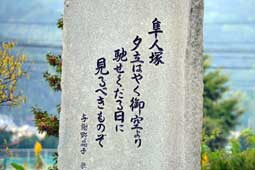 隼人塚
夕立はやく御空より
馳せくだる日に
見るべきものぞ
与謝野晶子